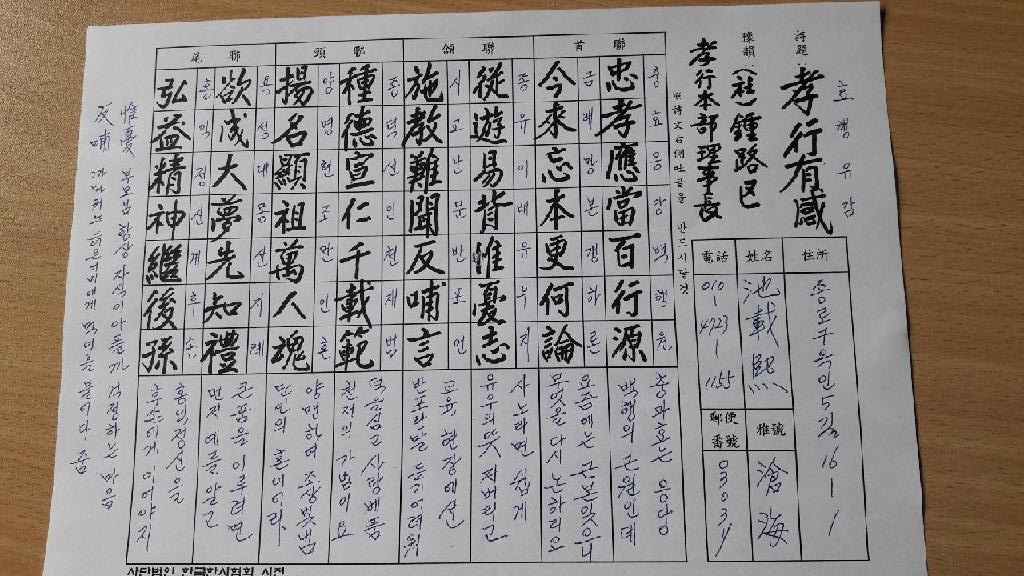 효행유감
詩題:
孝行有感
(社)鍾路區
孝行本部 理事長
住所
종로구 옥인5길 16-1
姓名
池載熙
電話
010-4723-1155
雅號
滄海
郵便番號
03034
首聯
충효응당백행원
忠孝應當百行源
금래망본갱하론
今來忘本更何論
頷聯
종유이배유우지
從遊易背惟憂志
시교난문반포언
施教難聞反哺言
頸聯
종덕선인천재범
種德宣仁千載範
양명현조만인혼
揚名顯祖萬人魂
尾聯
욕성대몽선지례
欲成大夢先知禮
홍익정신계후손
弘益精神繼後孫
충과효는 응당
백행의 근원인데
요즘에는 근본잊으니
무엇을 다시 논하리요
사노라면 쉽게
유우의 뜻 저버리고
교육 현장에선
반포란 말 듣기어려워
덕을심고 사랑베품
천년의 가범이요
양명하여 조상빛냄
만인의 혼이어라
큰꿈을 이루려면
먼저 예를 알고
홍익정신을
후손에게 이어야지
惟憂 부모님 항상 자식이 아플까 걱정하는 마음
反哺
사단법인 한국한시협회